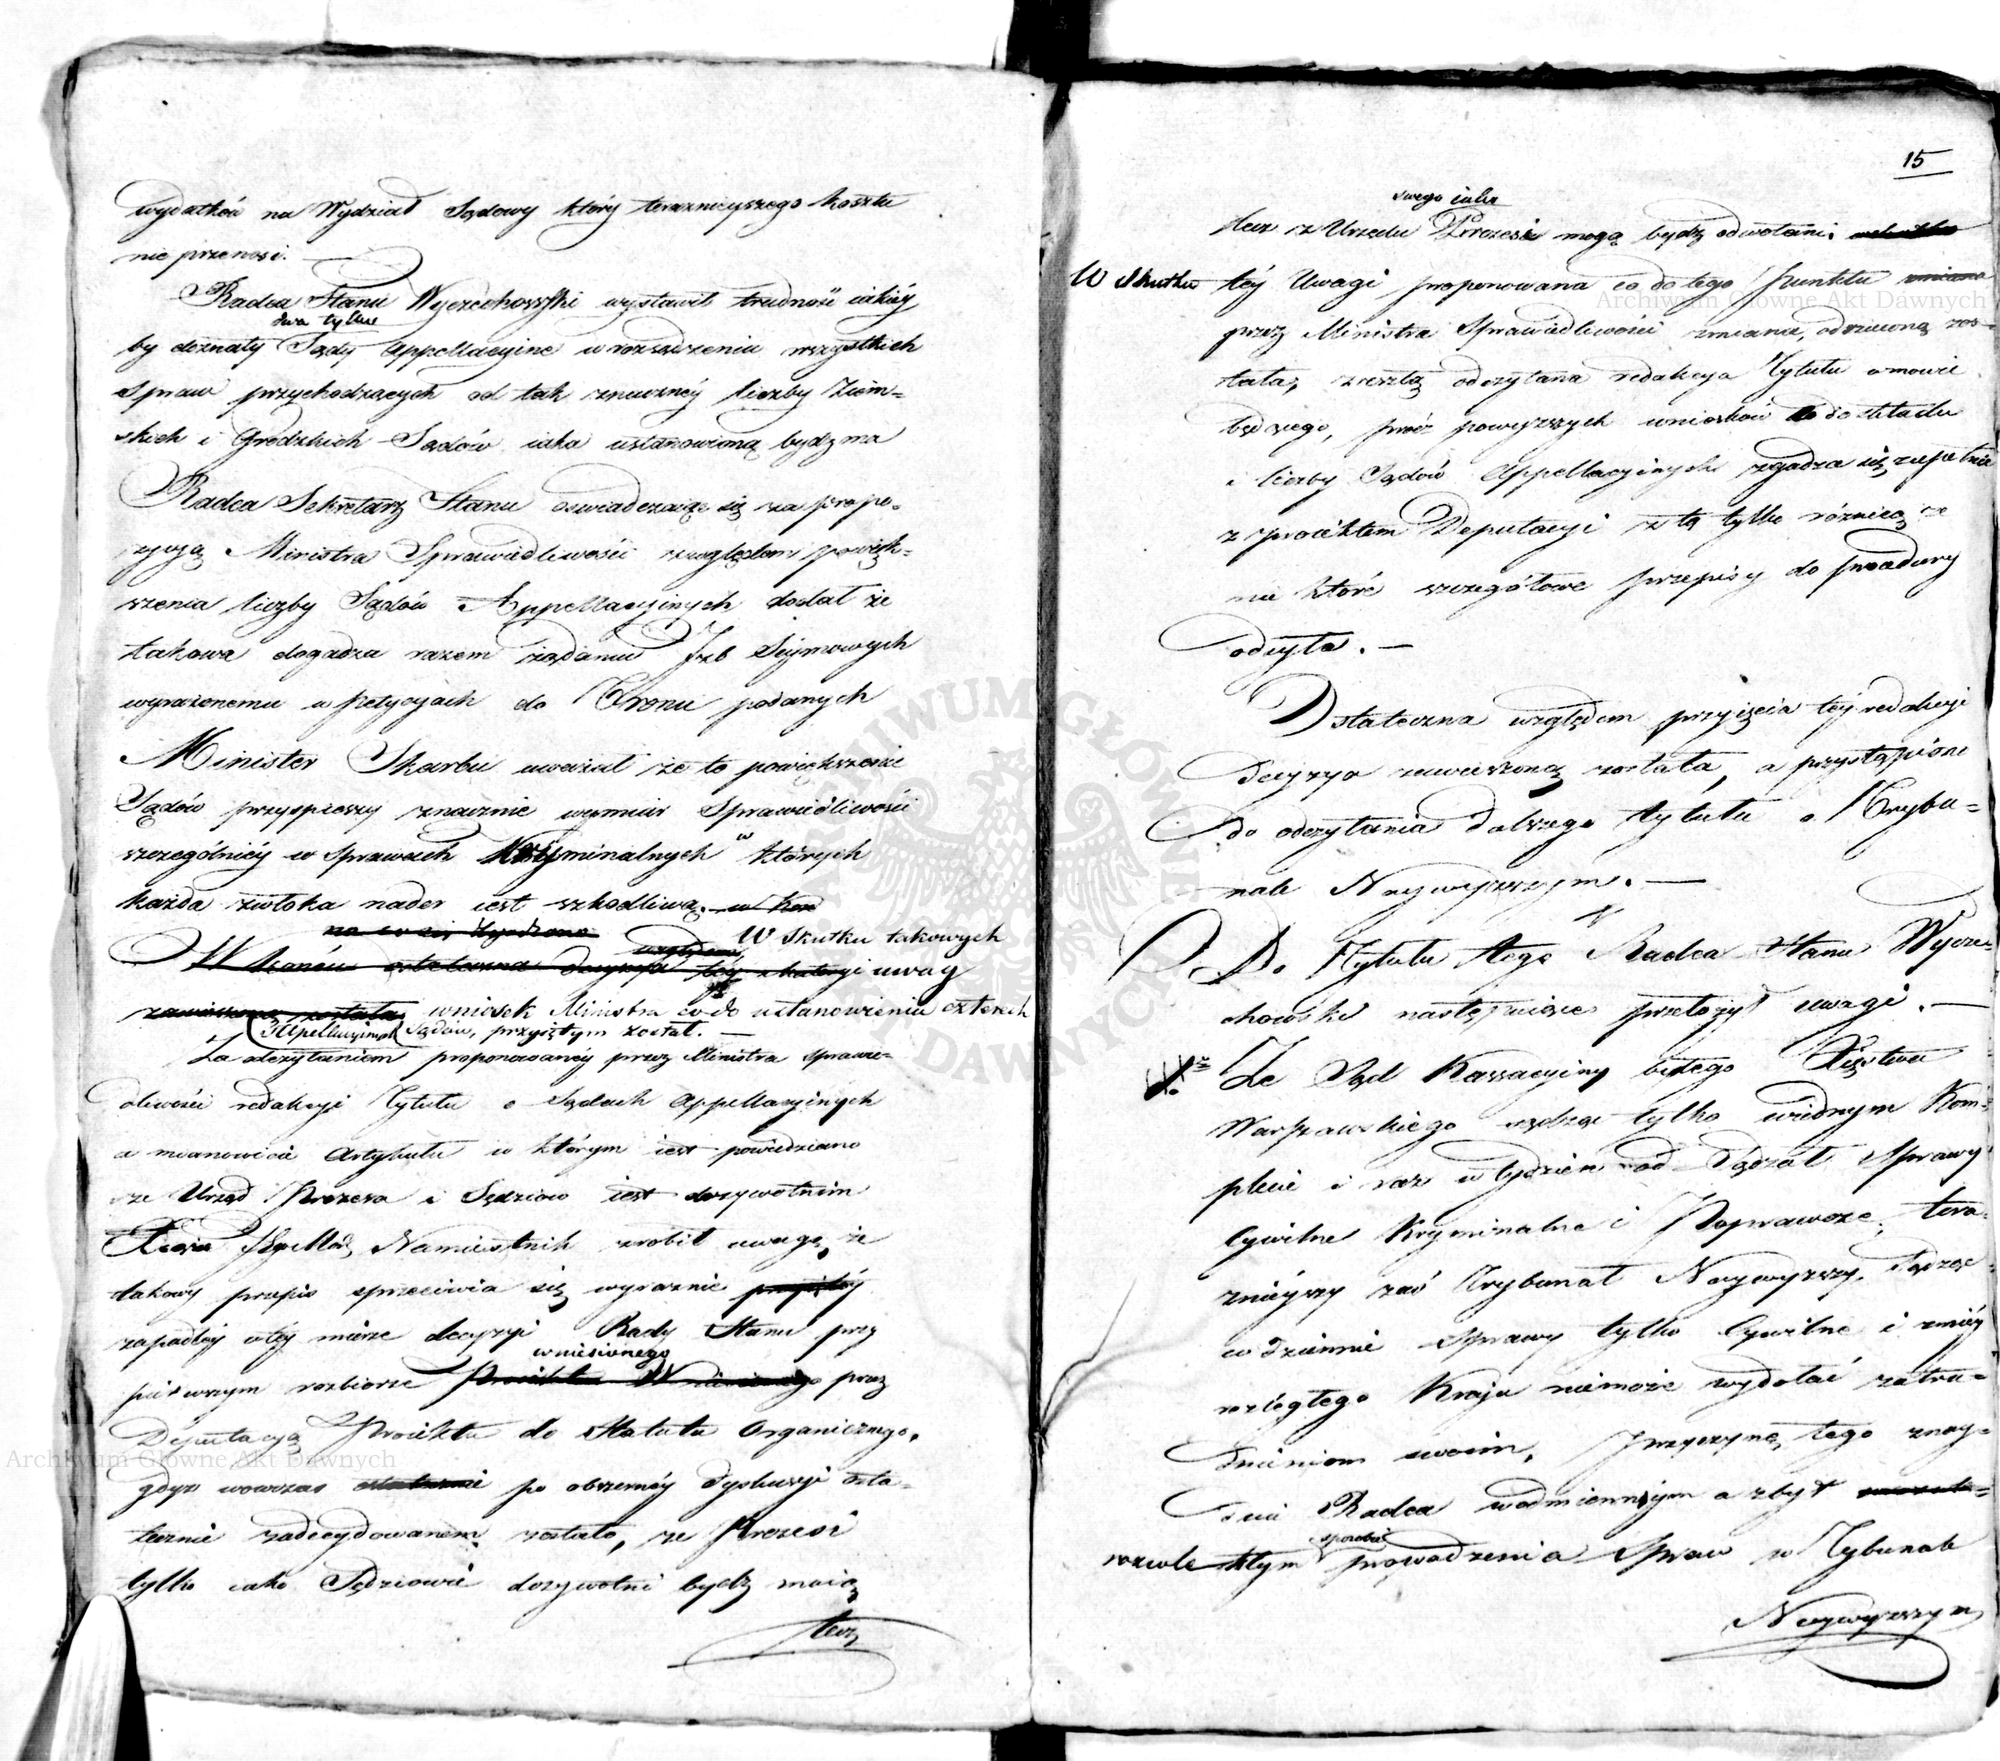 wydatków na Wydział Sądowy który teraznieyszego kosztu
nie przenosi.
Radca Stanu Wyczechowski wystawił trudność iakiéy
dwa tylko
by doznały Sądy Appellacyine w rozsądzeniu wszystkich
Spraw przychodzących od tak znacznéy liczby Ziem=
skich i Grodzkich Sądów iaka ustanowioną bydz ma
Radca Sekretarz Stanu oswiadczaiąc się za propo=
zycyą Ministra Sprawiedliwości względem powięk=
szenia liczby Sądów Appellacyinych dodał że
takowa dogadza razem żądaniu Izb Seymowych
wyrażonemu w petycyach do Tronu podanych
Minister Skarbu uważał że to powiększenie
Sądów przyspieszy znacznie wymiar Sprawiedliwości
szczególniey w Sprawach Kryminalnych w których
każda zwłoka nader iest szkodliwą.
na co się zgodzono
względem W Skutku takowych
W końcu ostateczna decyzya téy redakcyi uwag
zawieszoną została wniosek Ministra co do ustanowienia czterech
Appellacyinych Sądów, przyiętym został. —
Za odczytaniem proponowanéy przez Ministra Sprawie=
dliwości redakcyi Tytułu o Sądach Appellacyinych
a mianowicie Artykułu w którym iest powiedziano
że Urząd Prezesa i Sędziów iest dożywotnim
Xiąże Namiestnik zrobił uwagę, że
takowy przepis sprzeciwia się wyraznie
zapadłéy w téy mierze decyzyi Rady Stanu przy
wniesionego
pierwszym rozbiorze Proiektu Wniesionego przez
Deputacyą Proiektu do Statutu Organicznego,
gdyz wowczas ostatecznie po obszernéy dyskusyi osta=
tecznie zadecydowanem zostało, ze Prezesi
tylko iako Sędziowie dożywotni bydz maią
lecz
15
swego iako
lecz z Urzędu Prezesi mogą bydz odwołani.
W Skutku téy Uwagi proponowana co do tego punktu zmiana
przez Ministra Sprawiedliwości zmiana, odrzuconą zos=
tała, zresztą odczytana redakcya Tytułu o mowie
będącego, prócz powyzszych wniosków co do składu
i liczby Sądów Appellacyinych zgadza się zupełnie
z proiektem Deputacyi z tą tylko różnicą że
nie które szczegółowe przepisy do procedury
odsyła. —
Ostateczna względem przyięcia téy redakcyi
decyzya zawieszoną została, a przystąpiono
do odczytania dalszego tytułu o Trybu=
nale Naywyzszym. —
Do Tytułu tego Radca Stanu Wycze=
chowski następuiące przełożył uwagi. —
1. Ze Sąd Kassacyiny byłego Xięstwa
Warszawskiego sądząc tylko w iednym Kom=
plecie i raz w tydzien sądził Sprawy
Cywilne Kryminalne i Poprawcze, tera=
znieyszy zaś Trybunał Naywyzszy, Sądząc
codziennie Sprawy tylko Cywilne i mniéy
rozległego Kraju niemoże wydołać zatru=
dnieniom swoim, Przyczynę tego znay=
duie Radca w odmiennym a zbyt
sposobie
rozwlekłym prowadzenia Spraw w Trybunale
Naywyzszym
Archiwum Główne Akt Dawnych
Archiwum Główne Akt Dawnych
ARCHIWUM GŁÓWNE AKT DAWNYCH